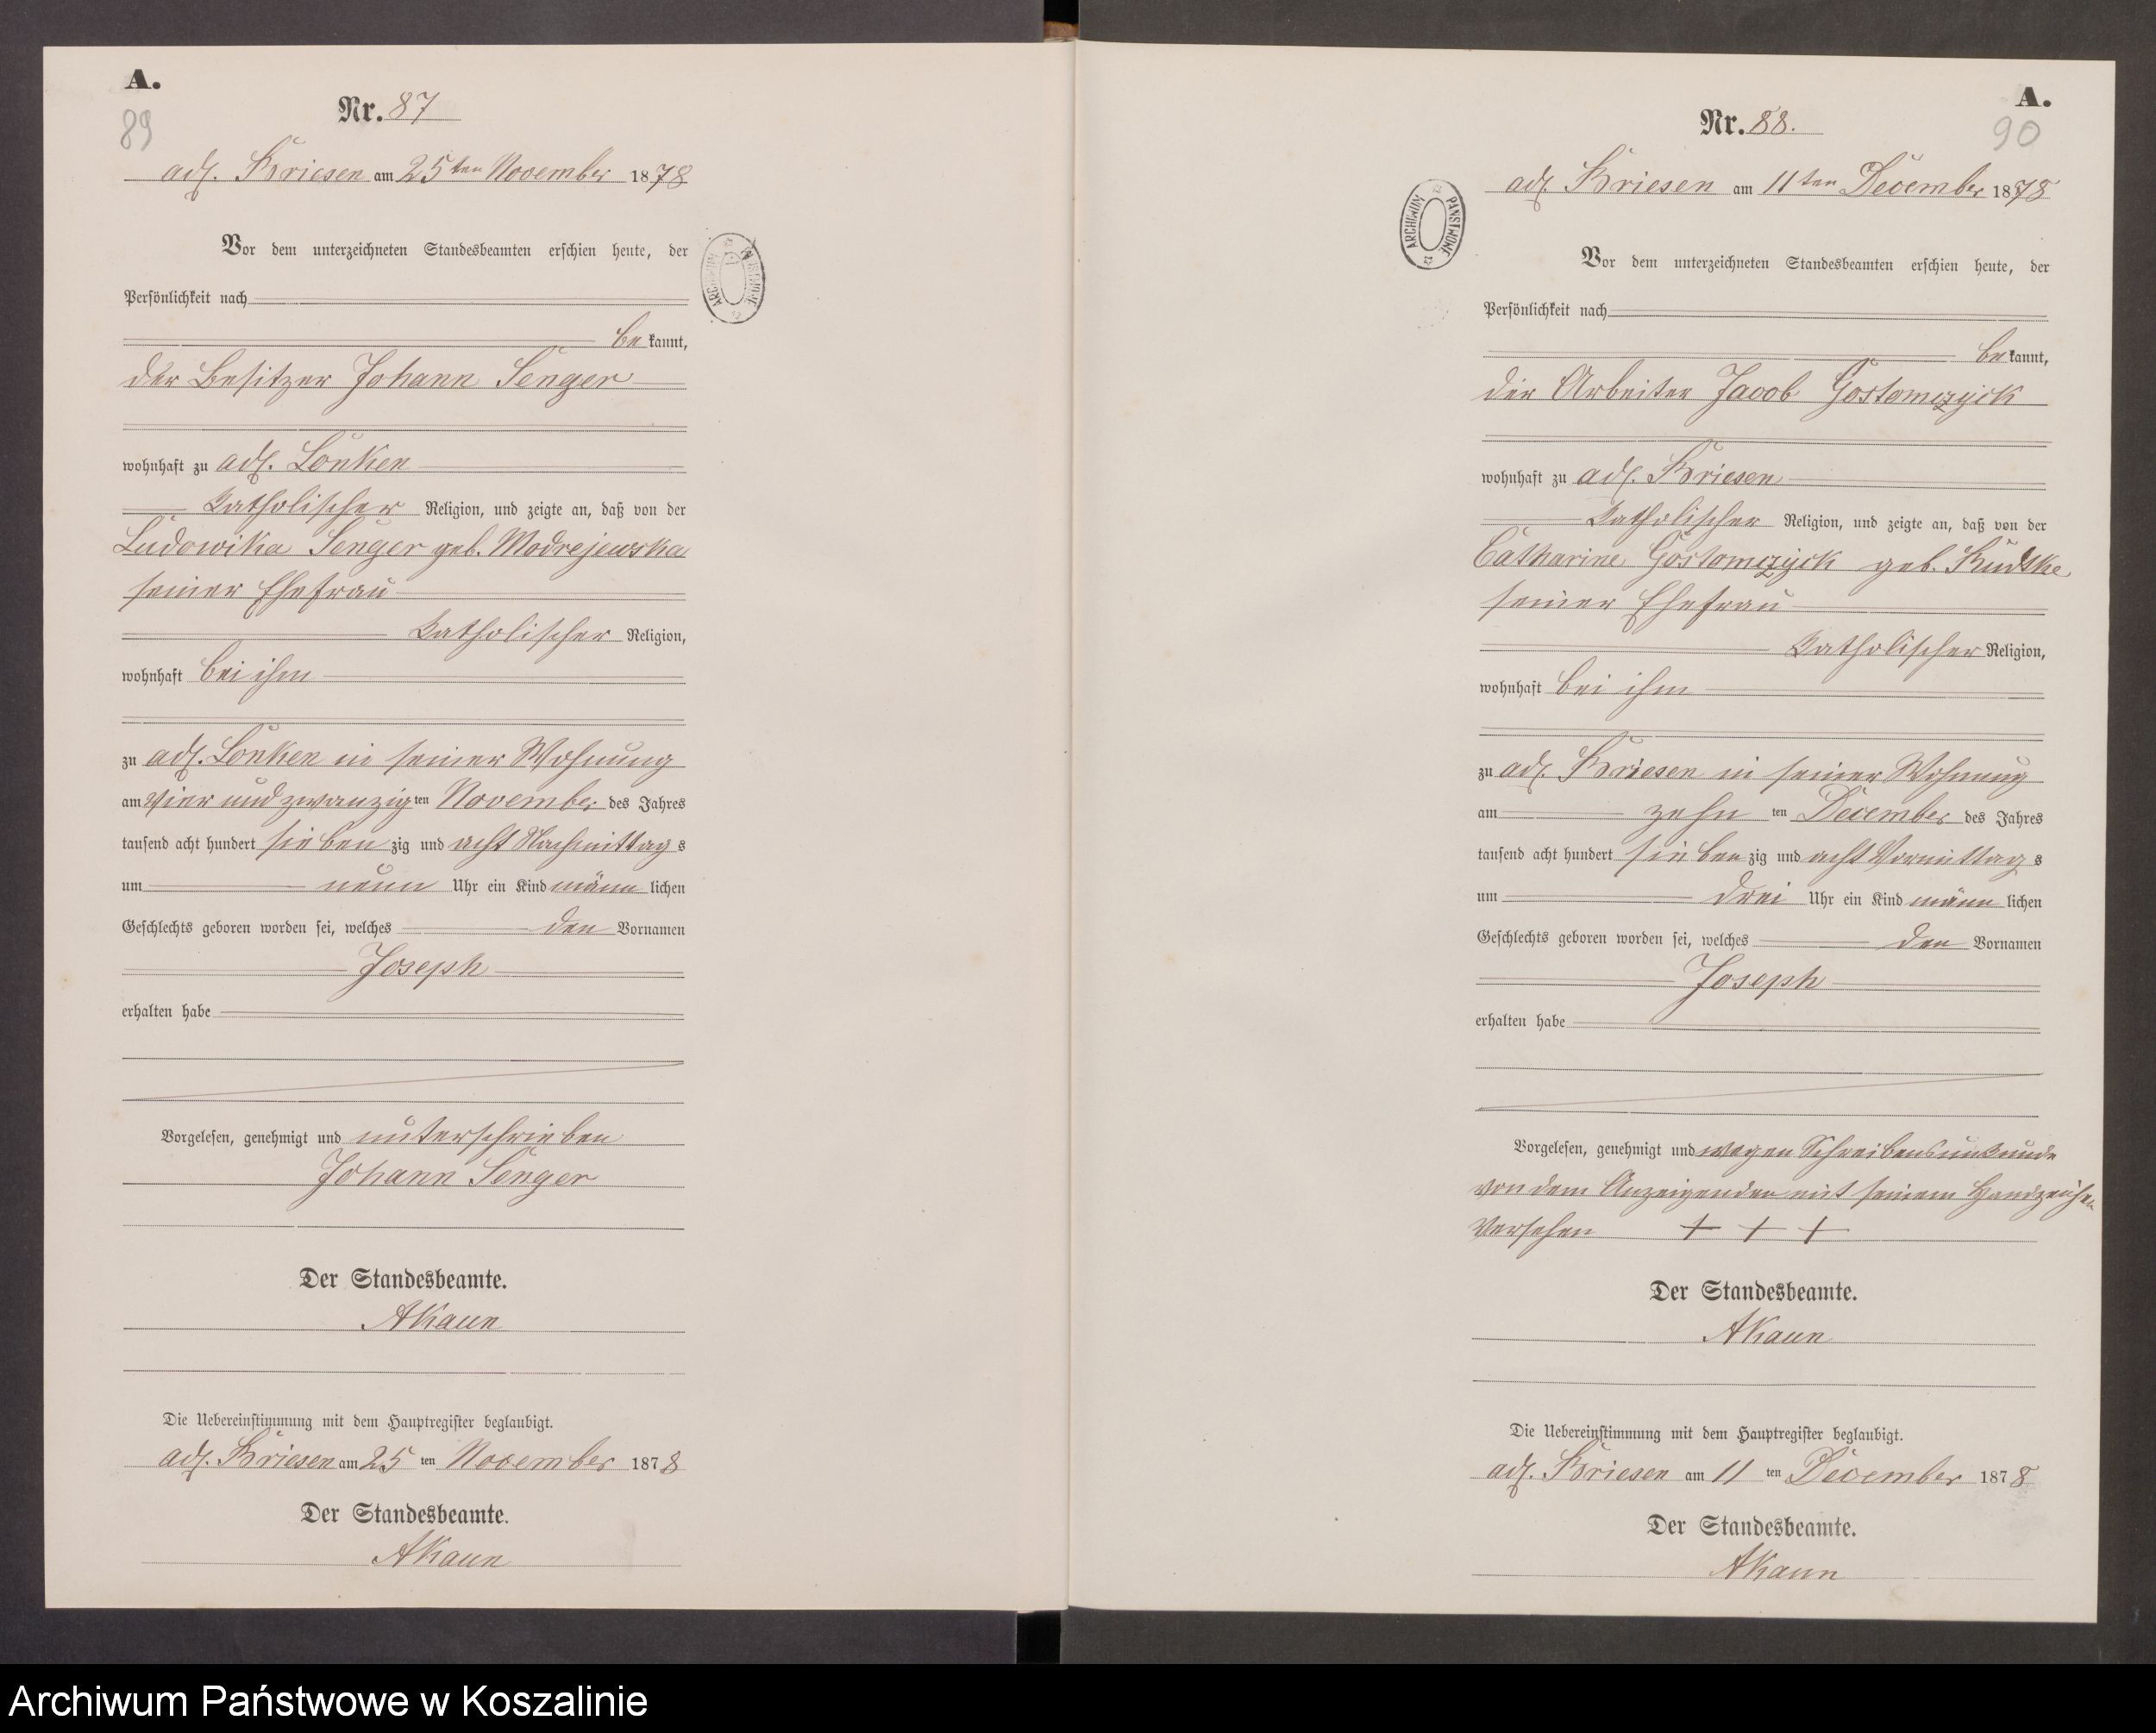 A.
89
Nr. 87
adl. Briesen am 25ten November 1878
Vor dem unterzeichneten Standesbeamten erschien heute, der
Persönlichkeit nach
be kannt,
der Besitzer Johann Senger
wohnhaft zu adl. Lonken
katholischer Religion, und zeigte an, daß von der
Ludowika Senger geb. Modrejewska
seiner Ehefrau
katholischer Religion,
wohnhaft bei ihm
zu adl. Lonken in seiner Wohnung
am vier und zwanzig ten November des Jahres
tausend acht hundert sieben zig und acht Nachmittag s
um neun Uhr ein Kind männ lichen
Geschlechts geboren worden sei, welches den Vornamen
Joseph
erhalten habe
Vorgelesen, genehmigt und unterschrieben
Johann Senger
Der Standesbeamte.
AKaun
Die Uebereinstimmung mit dem Hauptregister beglaubigt.
adl. Briesen am 25 ten November 1878
Der Standesbeamte.
AKaun
ARCHIWUM PAŃSTWOWE
A.
90
Nr. 88.
adl. Briesen am 11ten December 1878
Vor dem unterzeichneten Standesbeamten erschien heute, der
Persönlichkeit nach
be kannt,
der Arbeiter Jacob Gostomczyck
wohnhaft zu adl. Briesen
katholischer Religion, und zeigte an, daß von der
Catharine Gostomczyck geb. Kudske
seiner Ehefrau
katholischer Religion,
wohnhaft bei ihm
zu adl. Briesen in seiner Wohnung
am zehn ten December des Jahres
tausend acht hundert sieben zig und acht Vormittag s
um drei Uhr ein Kind männ lichen
Geschlechts geboren worden sei, welches den Vornamen
Joseph
erhalten habe
Vorgelesen, genehmigt und wegen Schreibensunkunde
von dem Anzeigenden mit seinem Handzeichen
versehen + + +
Der Standesbeamte.
AKaun
Die Uebereinstimmung mit dem Hauptregister beglaubigt.
adl. Briesen am 11 ten December 1878
Der Standesbeamte.
AKaun
ARCHIWUM PAŃSTWOWE
Archiwum Państwowe w Koszalinie